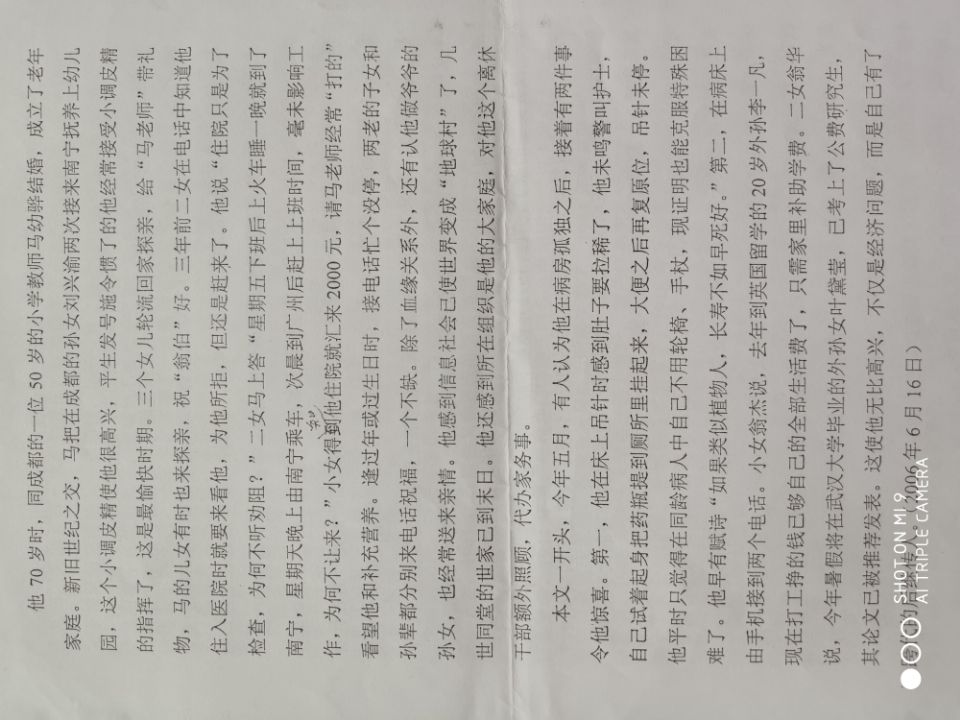 他 70 岁时，同成都的一位 50 岁的小学教师马幼骅结婚，成立了老年
家庭。新旧世纪之交，马把在成都的孙女刘兴渝两次接来南宁抚养上幼儿
园，这个小调皮精使他很高兴，平生发号施令惯了的他经常接受小调皮精
的指挥了，这是最愉快时期。三个女儿轮流回家探亲，给“马老师”带礼
物，马的儿女有时也来探亲，祝“翁伯”好。三年前二女在电话中知道他
住入医院时就要来看他，为他所拒，但还是赶来了。他说“住院只是为了
检查，为何不听劝阻？”二女马上答“星期五下班后上火车睡一晚就到了
南宁，星期天晚上由南宁乘车，次晨到广州后赶上上班时间，毫未影响工
作，为何不让来？”小女得到他住院就汇来 2000 元，请马老师经常“打的”
看望他和补充营养。逢过年或过生日时，接电话忙个没停，两老的子女和
孙辈都分别来电话祝福，一个不缺。除了血缘关系外，还有认他做爷爷的
孙女，也经常送来亲情。他感到信息社会已使世界变成“地球村”了，几
世同堂的世家已到末日。他还感到所在组织是他的大家庭，对他这个离休
干部额外照顾，代办家务事。
本文一开头，今年五月，有人认为他在病房孤独之后，接着有两件事
令他惊喜。第一，他在床上吊针时感到肚子要拉稀了，他未鸣警叫护士，
自己试着起身把药瓶提到厕所里挂起来，大便之后再复原位，吊针未停。
他平时只觉得在同龄病人中自己不用轮椅、手杖，现证明也能克服特殊困
难了。他早有赋诗“如果类似植物人，长寿不如早死好。”第二，在病床上
由手机接到两个电话。小女翁杰说，去年到英国留学的 20 岁外孙李一凡，
现在打工挣的钱已够自己的全部生活费了，只需家里补助学费。二女翁华
说，今年暑假将在武汉大学毕业的外孙女叶黛莹，已考上了公费研究生，
其论文已被推荐发表。这使他无比高兴，不仅是经济问题，而是自己有了
的后继 006 年 6 月 16 日）
SHOT ON MI 9
AI TRIPLE CAMERA